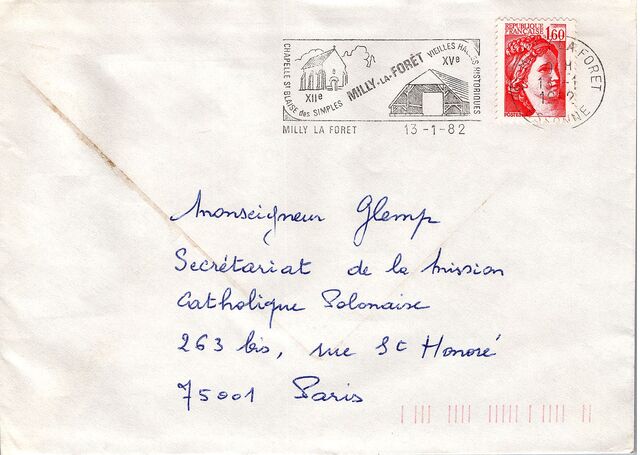 CHAPELLE St BLAISE des SIMPLES
XIIe
MILLY-LA-FORÊT
VIEILLES HALLES HISTORIQUES
XVe
MILLY LA FORET 13-1-82
REPUBLIQUE FRANÇAISE
1,60
POSTES
LA FORET
ESSONNE
Monseigneur Glemp
Secrétariat de la mission
Catholique Polonaise
263 bis, rue St Honoré
75001 Paris